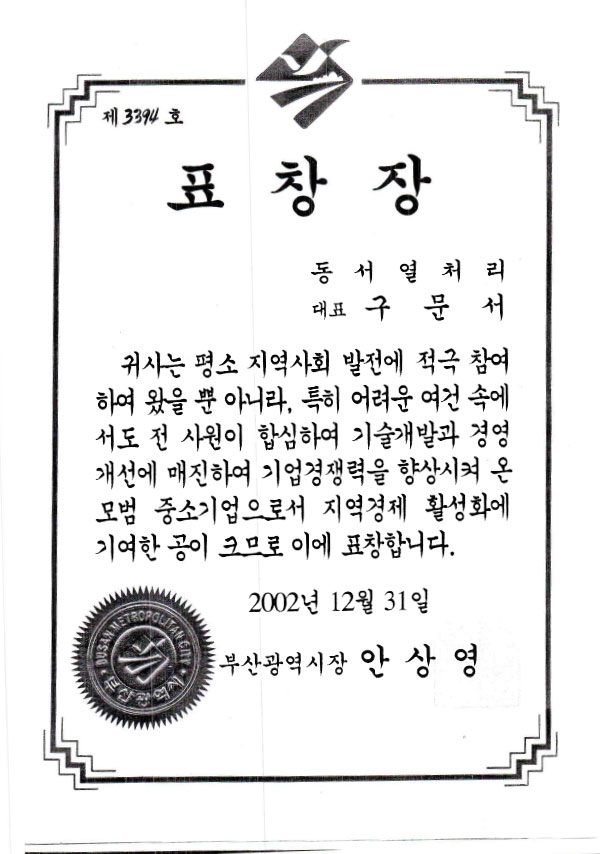 제 3394 호
표 창 장
동 서 열 처 리
대표 구 문 서
귀사는 평소 지역사회 발전에 적극 참여
하여 왔을 뿐 아니라, 특히 어려운 여건 속에
서도 전 사원이 합심하여 기술개발과 경영
개선에 매진하여 기업경쟁력을 향상시켜 온
모범 중소기업으로서 지역경제 활성화에
기여한 공이 크므로 이에 표창합니다.
2002년 12월 31일
부산광역시장 안 상 영
BUSAN METROPOLITAN CITY
부산광역시